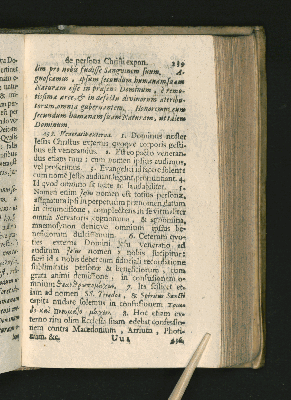 & persona Christi expon. 339
lim pro nobis fudisse Sanguinem suum, A-
gnoscamus, ipsum secundum humanam suam
Naturam esse in præsens Dominum, è remo-
tissima arce, & in defectu divinorum attribu-
torum, omnia gubernantem. Honoremus eum
secundum humanam suam Naturam, ut talem
Dominum.
1. Dominus noster
Jesus Christus externis quoque corporis gesti-
bus est venerandus. 2. Est eo pacto veneran-
dus etiam tum; cum nomen ipsius auditur,
vel profertur. 3. Evangelici id facere solent
cum nomē Jesu audiunt, legunt, pronuntiant. 4.
& laudabiliter. 5.
Nomen enim Jesu nomen est totius personæ,
assignatum ipsi in perpetuum
in circumcisione, complectens in se virtualiter
omnia Servatoris cognomina, &
denique omnium ipsius be-
neficiorum dulcissimum. 6.
ties externa Domini Jesu veneratio ad
auditum Jesu nomen à nobis suscipitur;
fieri id à nobis debet cum fiduciali recordatione
sublimitatis personæ & beneficiorum, cum
grata animi demissione, in confusionem o-
mnium 7. Ita scilicet et-
iam ad nomen SS. Triados, & Spiritus Sancti
capita nudare solemus in confusionem
8. Hoc etiam ex-
terno ritu olim Ecclesia suam edebat confessio-
nem contra Macedonium, Arrium, Photi-
num, &c. Uu 2